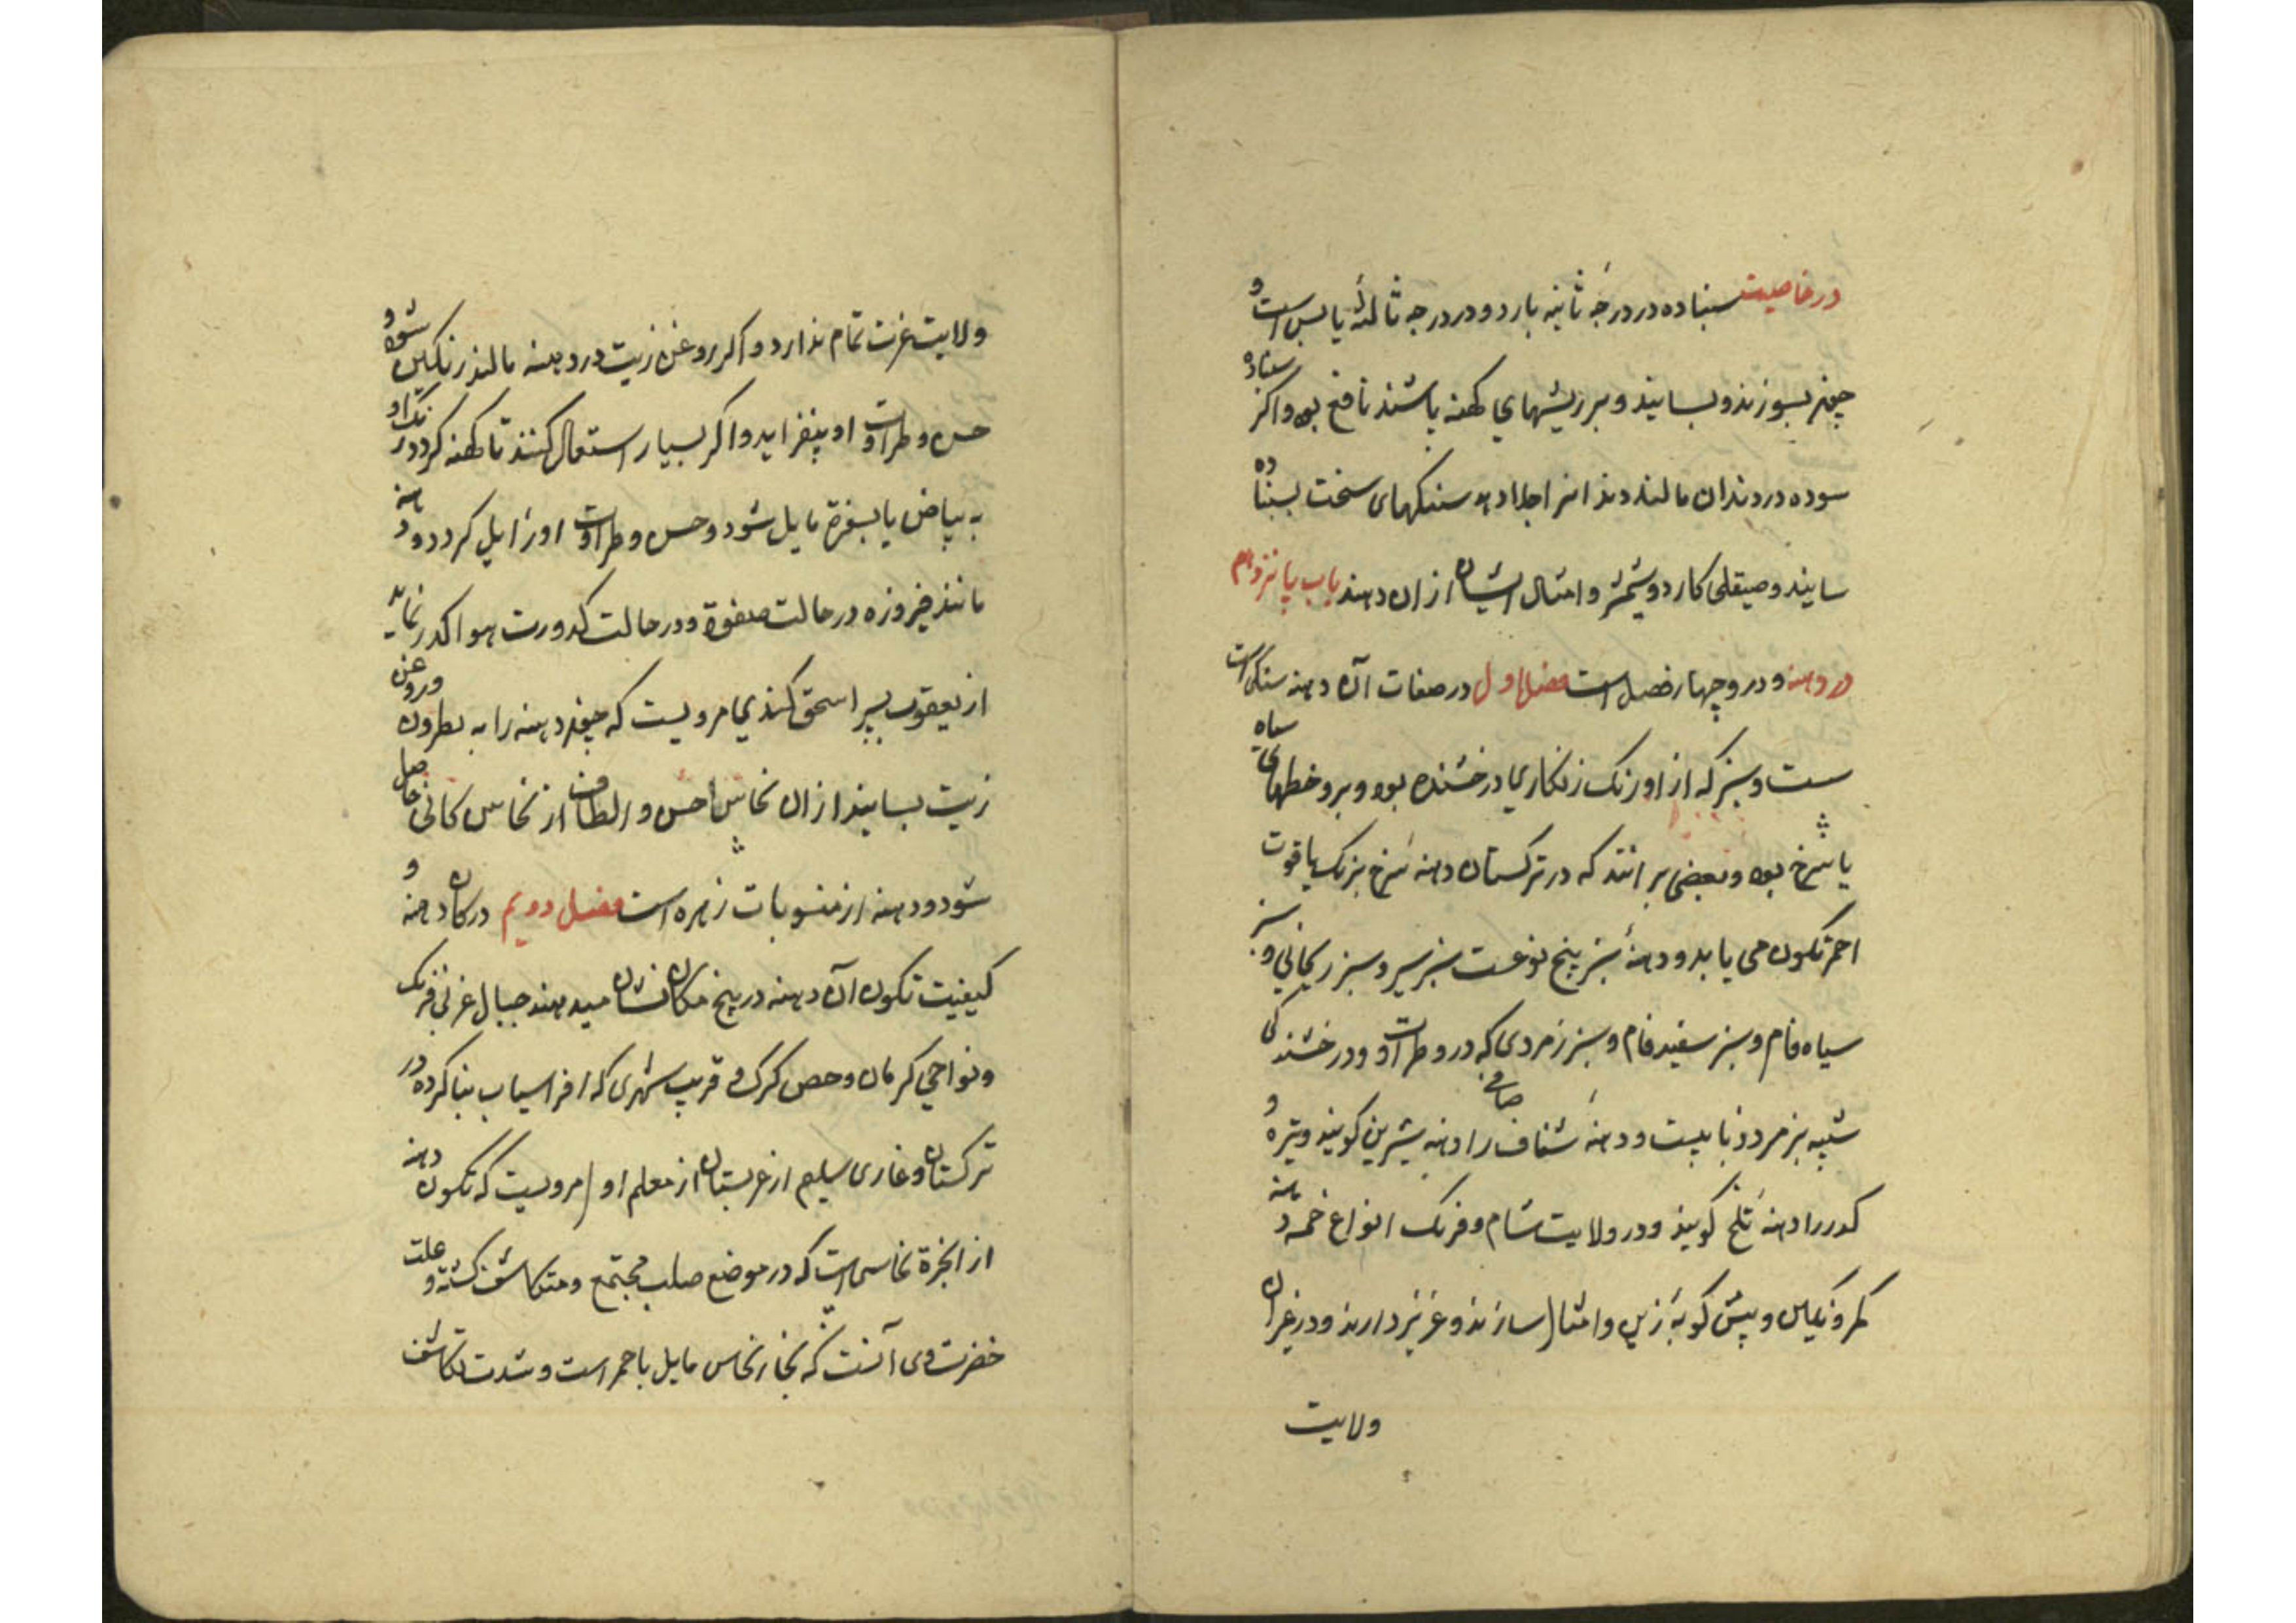 در خاصیت سنباده در درجهٔ ثانیه بارد و در درجه ثالثه یابس است و
چون بسوزند و بسایند و بر ریشهای کهنه پاشند نافع بود و اکر سنباده
سوده در دندان مالند دندانرا جلا دهد سنکهای سخت بسنباده
سایند و صیقلی کارد و شمشیر و امثال ایشان از ان دهند باب پانزدهم
در دهنه و درو چهار فصل است فصل اول در صفات آن دهنه سنکی است
سست و سبز که از او رنک زنکاری درخشنده بود و برو خطهای سیاه
یا سرخ بود و بعضی بر انند که در ترکستان دهنه سرخ برنک یاقوت
احمر تکون می یابد و دهنهٔ سبز پنج نوعست سبز سیر و سبز ریحانی و سبز
سیاه فام و سبز سفید فام و سبز زمردی که در و طراوت و درخشندکی
شبیه بزمرد ذبابیست و دهنهٔ شفاف صافی را دهنه شیرین کویند و تیره و
کدر را دهنهٔ تلخ کویند و در ولایت شام و فرنک انواع خمسه دهنه
کمر و نکین و پیش کوبهٔ زین و امثال سازند و عزیز دارند و در غیر ان
ولایت
ولایت عزت تمام ندارد و اکر روغن زیت در دهنه مالند رنکین شود و
حسن و طراوت او بیفزاید و اکر بسیار استعمال کنند تا کهنه کردد رنک او
به بیاض یا بسفرة مایل شود و حسن و طراوت او زایل کردد و دهنه
مانند فیروزه در حالت صفوة و در حالت کدورت هوا اکدر نماید
از یعقوب پسر اسحق کندی مرویست که چون دهنه را به نطرون و روغن
زیت بسایند از ان نحاس احسن و الطف از نحاس کانی حاصل
شود و دهنه از منسوبات زهره است فصل دویم در کان دهنه و
کیفیت تکون آن دهنه در پنج مکان نشان میدهند جبال غربی فرنک
و نواحی کرمان و حصن کرک و قریب شهری که افراسیاب بنا کرده در
ترکستان و غاری سلیم از عربستان از معلم اول مرویست که تکون دهنه
از ابخرة نحاسی است که در موضع صلب مجتمع و متکاثف کشته و علت
خضرت وی آنست که بخار نحاس مایل باحمر است و شدت تکاثف